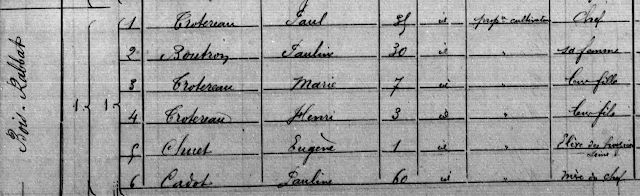 Bois-Rabbat
1 1
1 Trotereau Paul 35 id prop. cultivateur Chef
2 Boutron Pauline 30 id " sa femme
3 Trotereau Marie 7 id " leur fille
4 Trotereau Henri 3 id " leur fils
5 Eugène 1 id " Elève des
6 Cadot Pauline 60 id " mère du chef